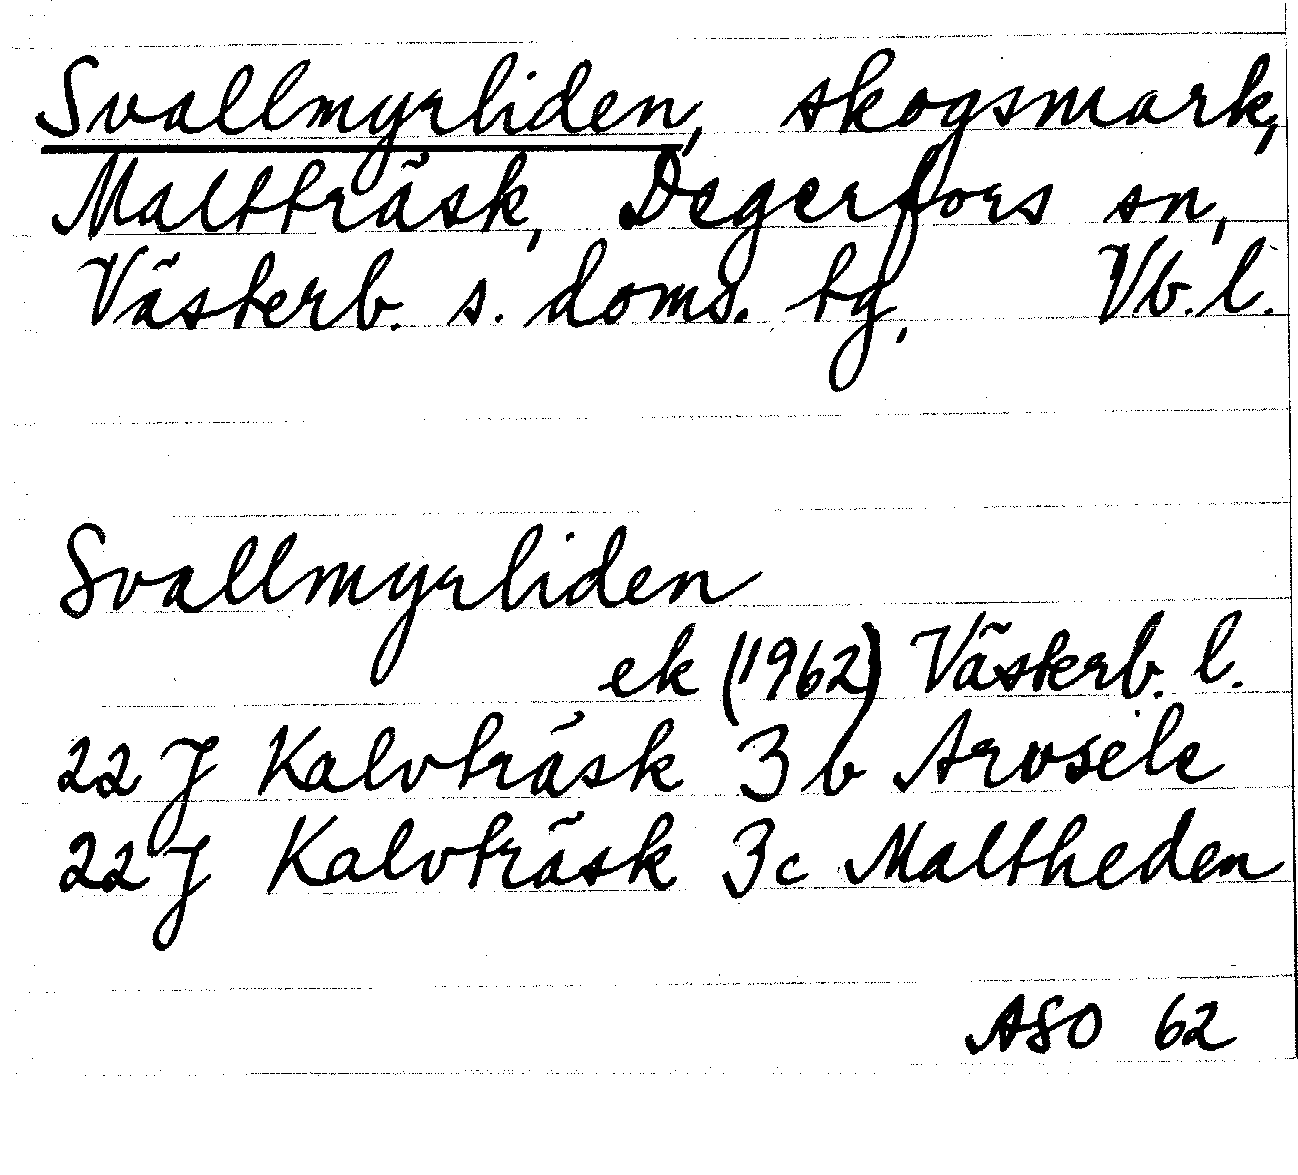 Svallmyrliden, skogsmark,
Maltträsk, Degerfors sn,
Västerb. s. doms. tg, Vb. l.
Svallmyrliden
ek (1962) Västerb. l.
22 J Kalvträsk 3 b Arvsele
22 J Kalvträsk 3c Maltheden
ASO 62